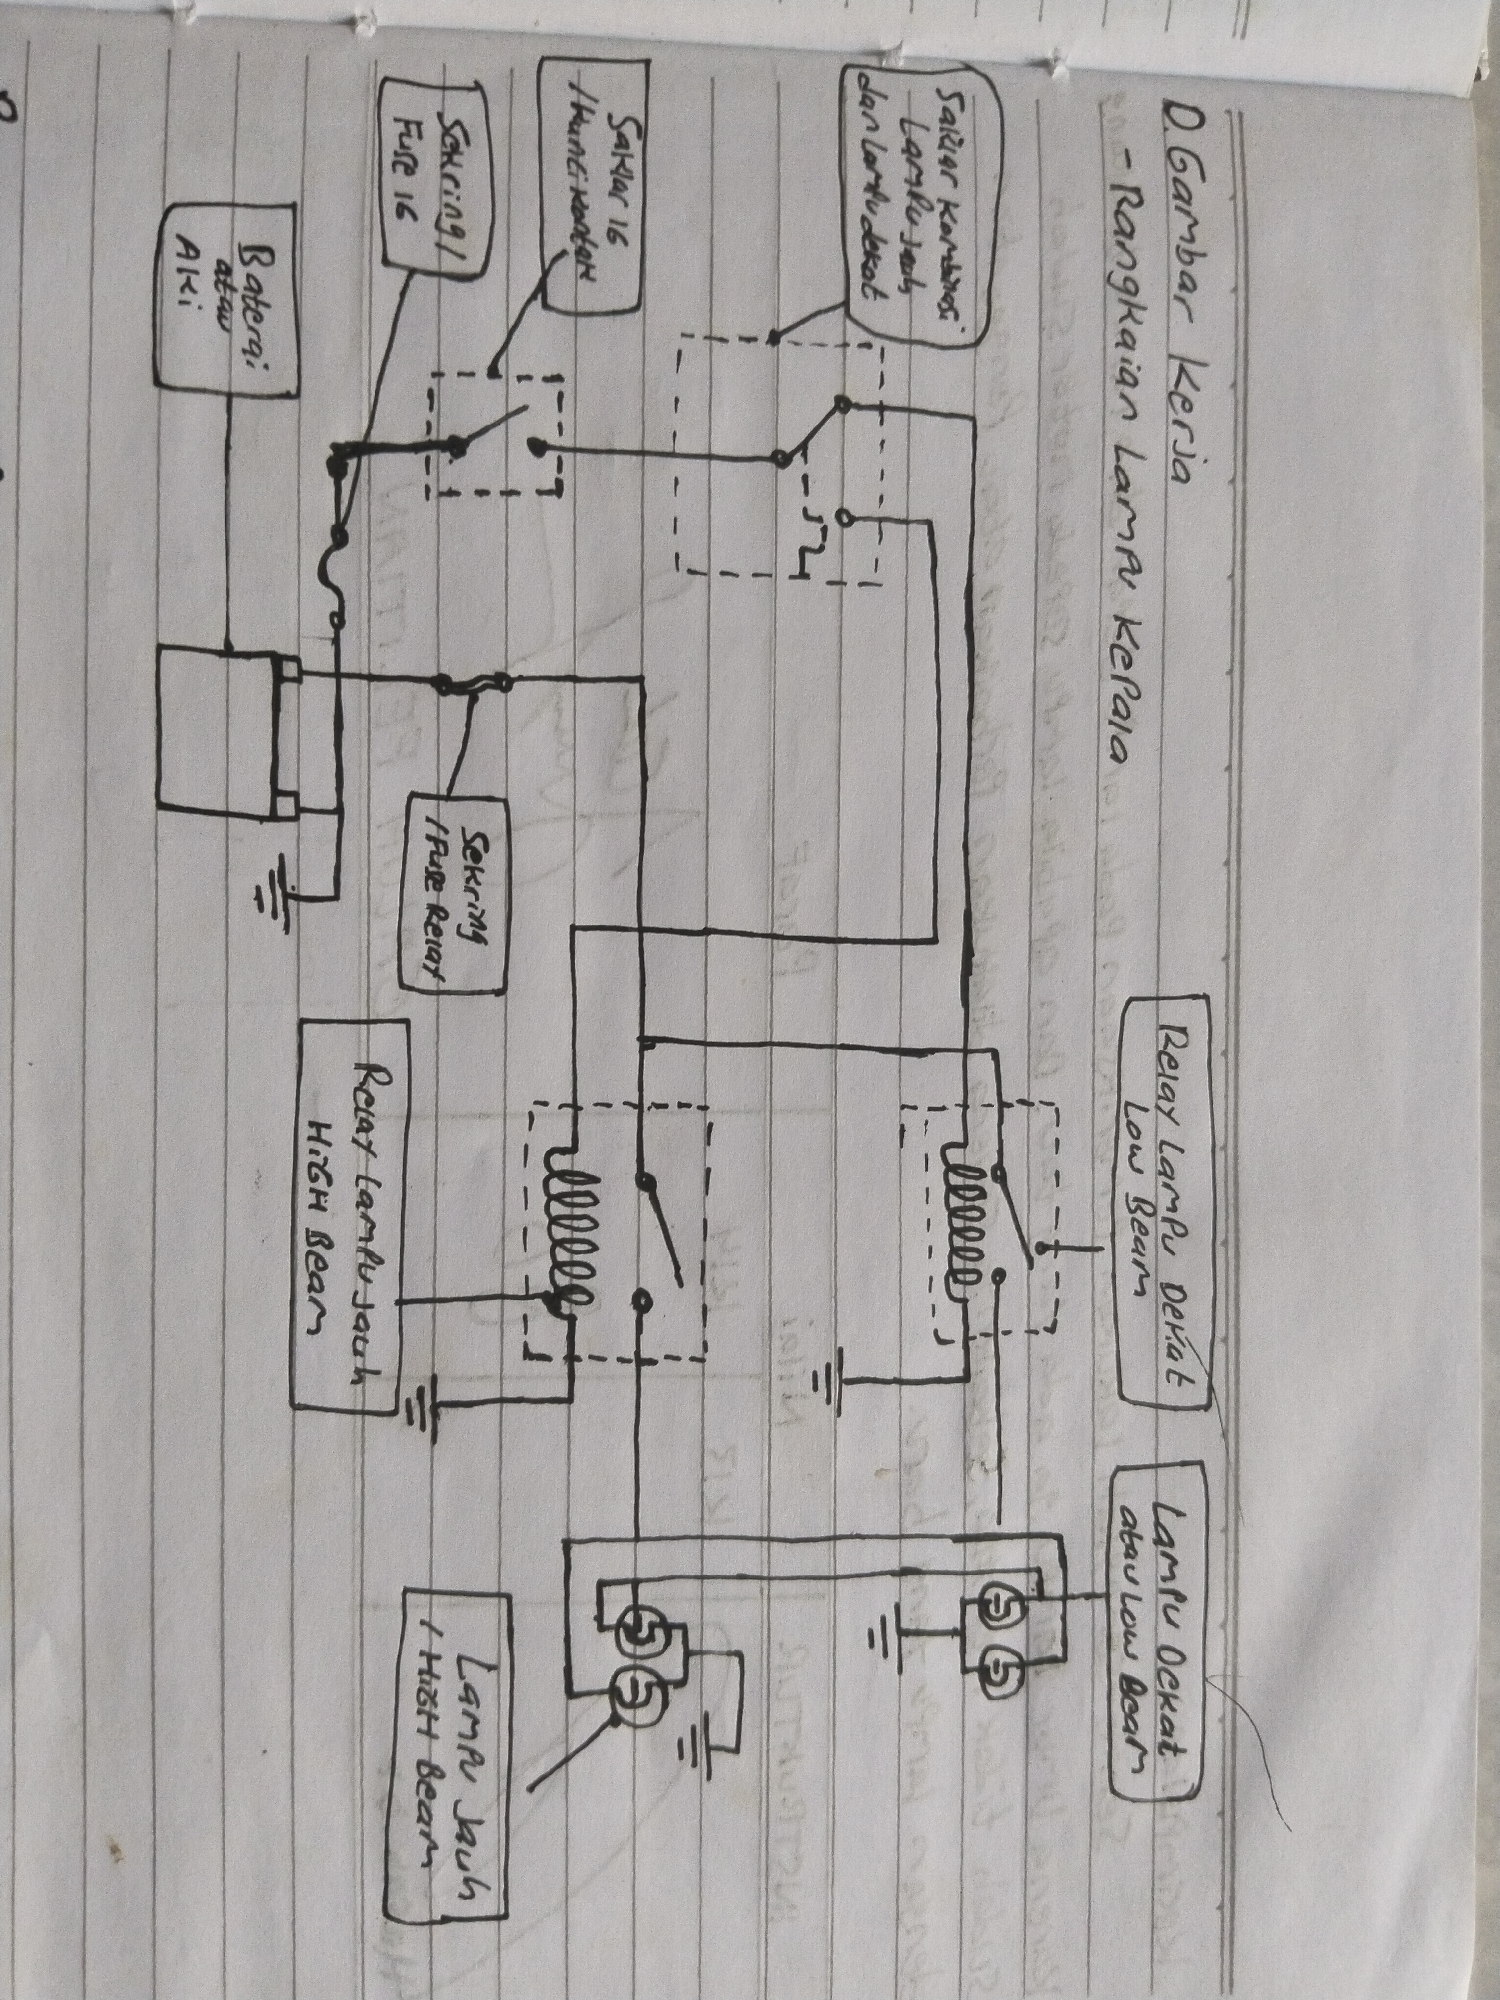 D. Gambar Kerja
- Rangkaian Lampu Kepala
Saklar Kombinasi
Lampu Jauh
dan Lampu dekat
Saklar IG
/ Kunci Kontak
Sekring /
Fuse IG
Baterai
atau
Aki
Sekring
/ Fuse Relay
Relay Lampu Dekat
Low Beam
Relay Lampu Jauh
HIGH Beam
Lampu Dekat
atau Low Beam
Lampu Jauh
/ HIGH Beam